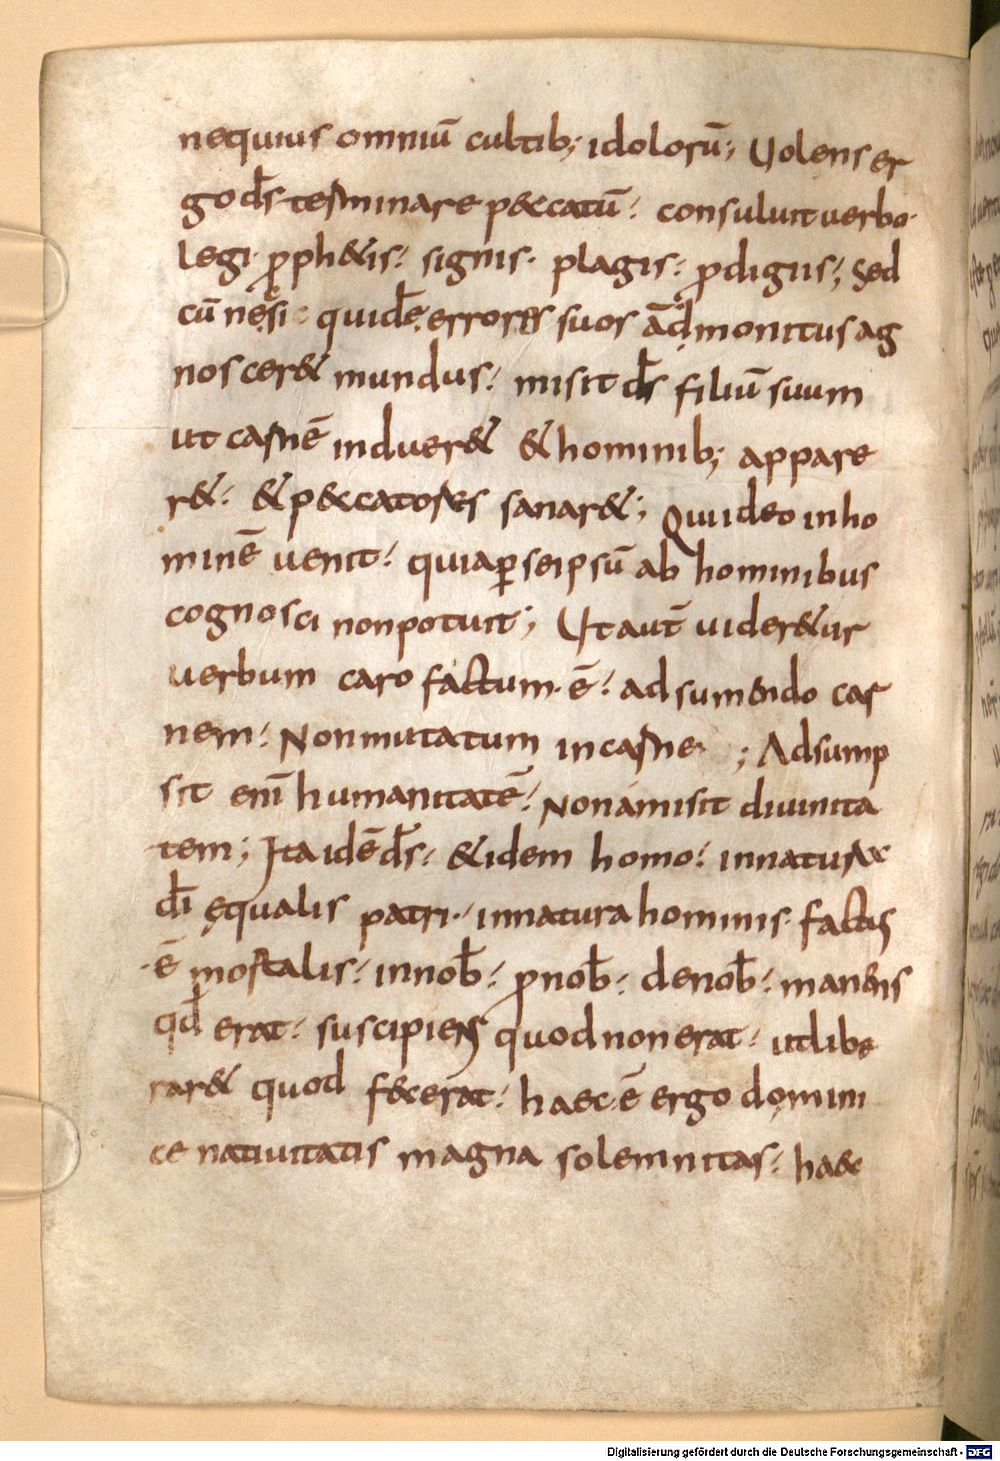 nequius omniū cultib; idolorū; Uolens er
go d̄s terminare p&catū: consuluit uerbo·
legi· ꝓph&is: signis· plagis: ꝓdigiis; Sed
cū nec si quidē errores suos ādmonitus ag
noscer& mundus: misit d̄s filiū suum
ut carnē induer& & hominib; appare
r&: & p&catores sanar&; Qui ideo in ho
minē uenit: quia ꝑ seipsū ab hominibus
cognosci non potuit; Ut aut̄ uider&ur
uerbum caro factum· ē: adsumendo car
nem: Non mutatum in carne ; Adsump
sit enī humanitatē: Non amisit diuinita
tem; Ita idē d̄s: & idem homo: in natura
d̄i ęqualis patri·: in natura hominis· factus
·ē mortalis: in nob̄: ꝓ nob̄: de nob̄: manens
qd̄ erat: suscipiens quod non erat: ut libe
rar& quod fecerat: haec· ē ergo domini
ce natiuitatis magna solemnitas: haec
Digitalisierung gefördert durch die Deutsche Forschungsgemeinschaft - DFG